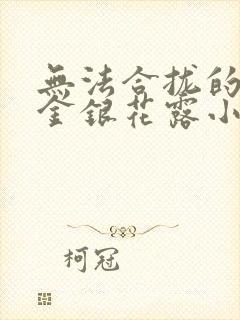 無法合拢的
金銀花露小
柯冠